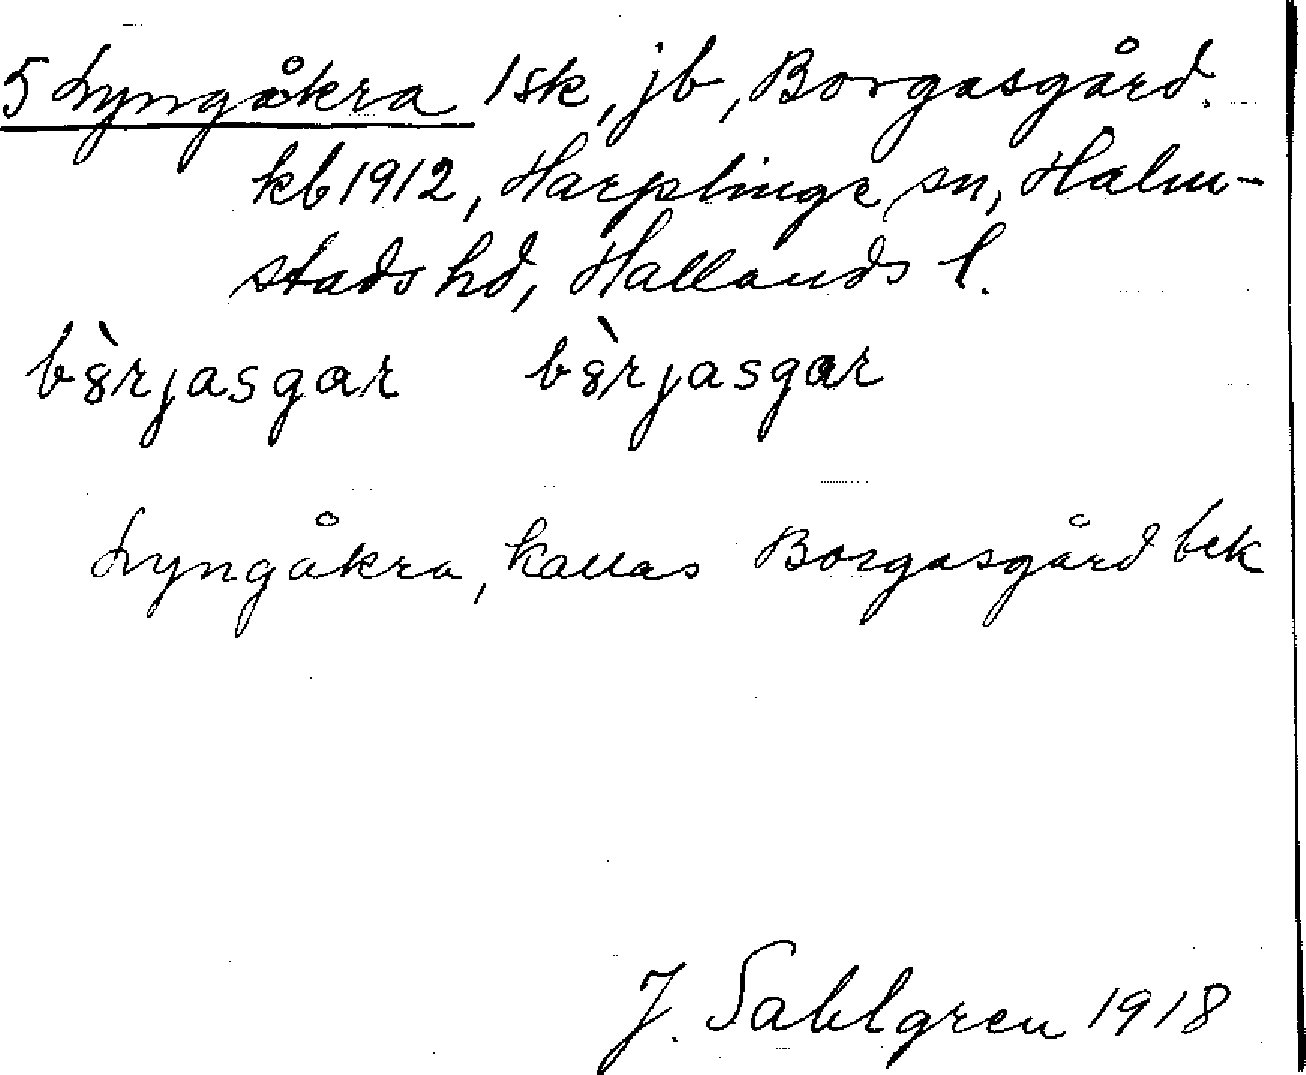 5 Lyngåkra 1 sk, jb, Borgasgård.
kb 1912, Harplinge sn, Halm-
stads hd, Hallands l.
bè8rjasgar bè8rjasgar
Lyngåkra, kallas Borgasgård bek
J. Sahlgren 1918